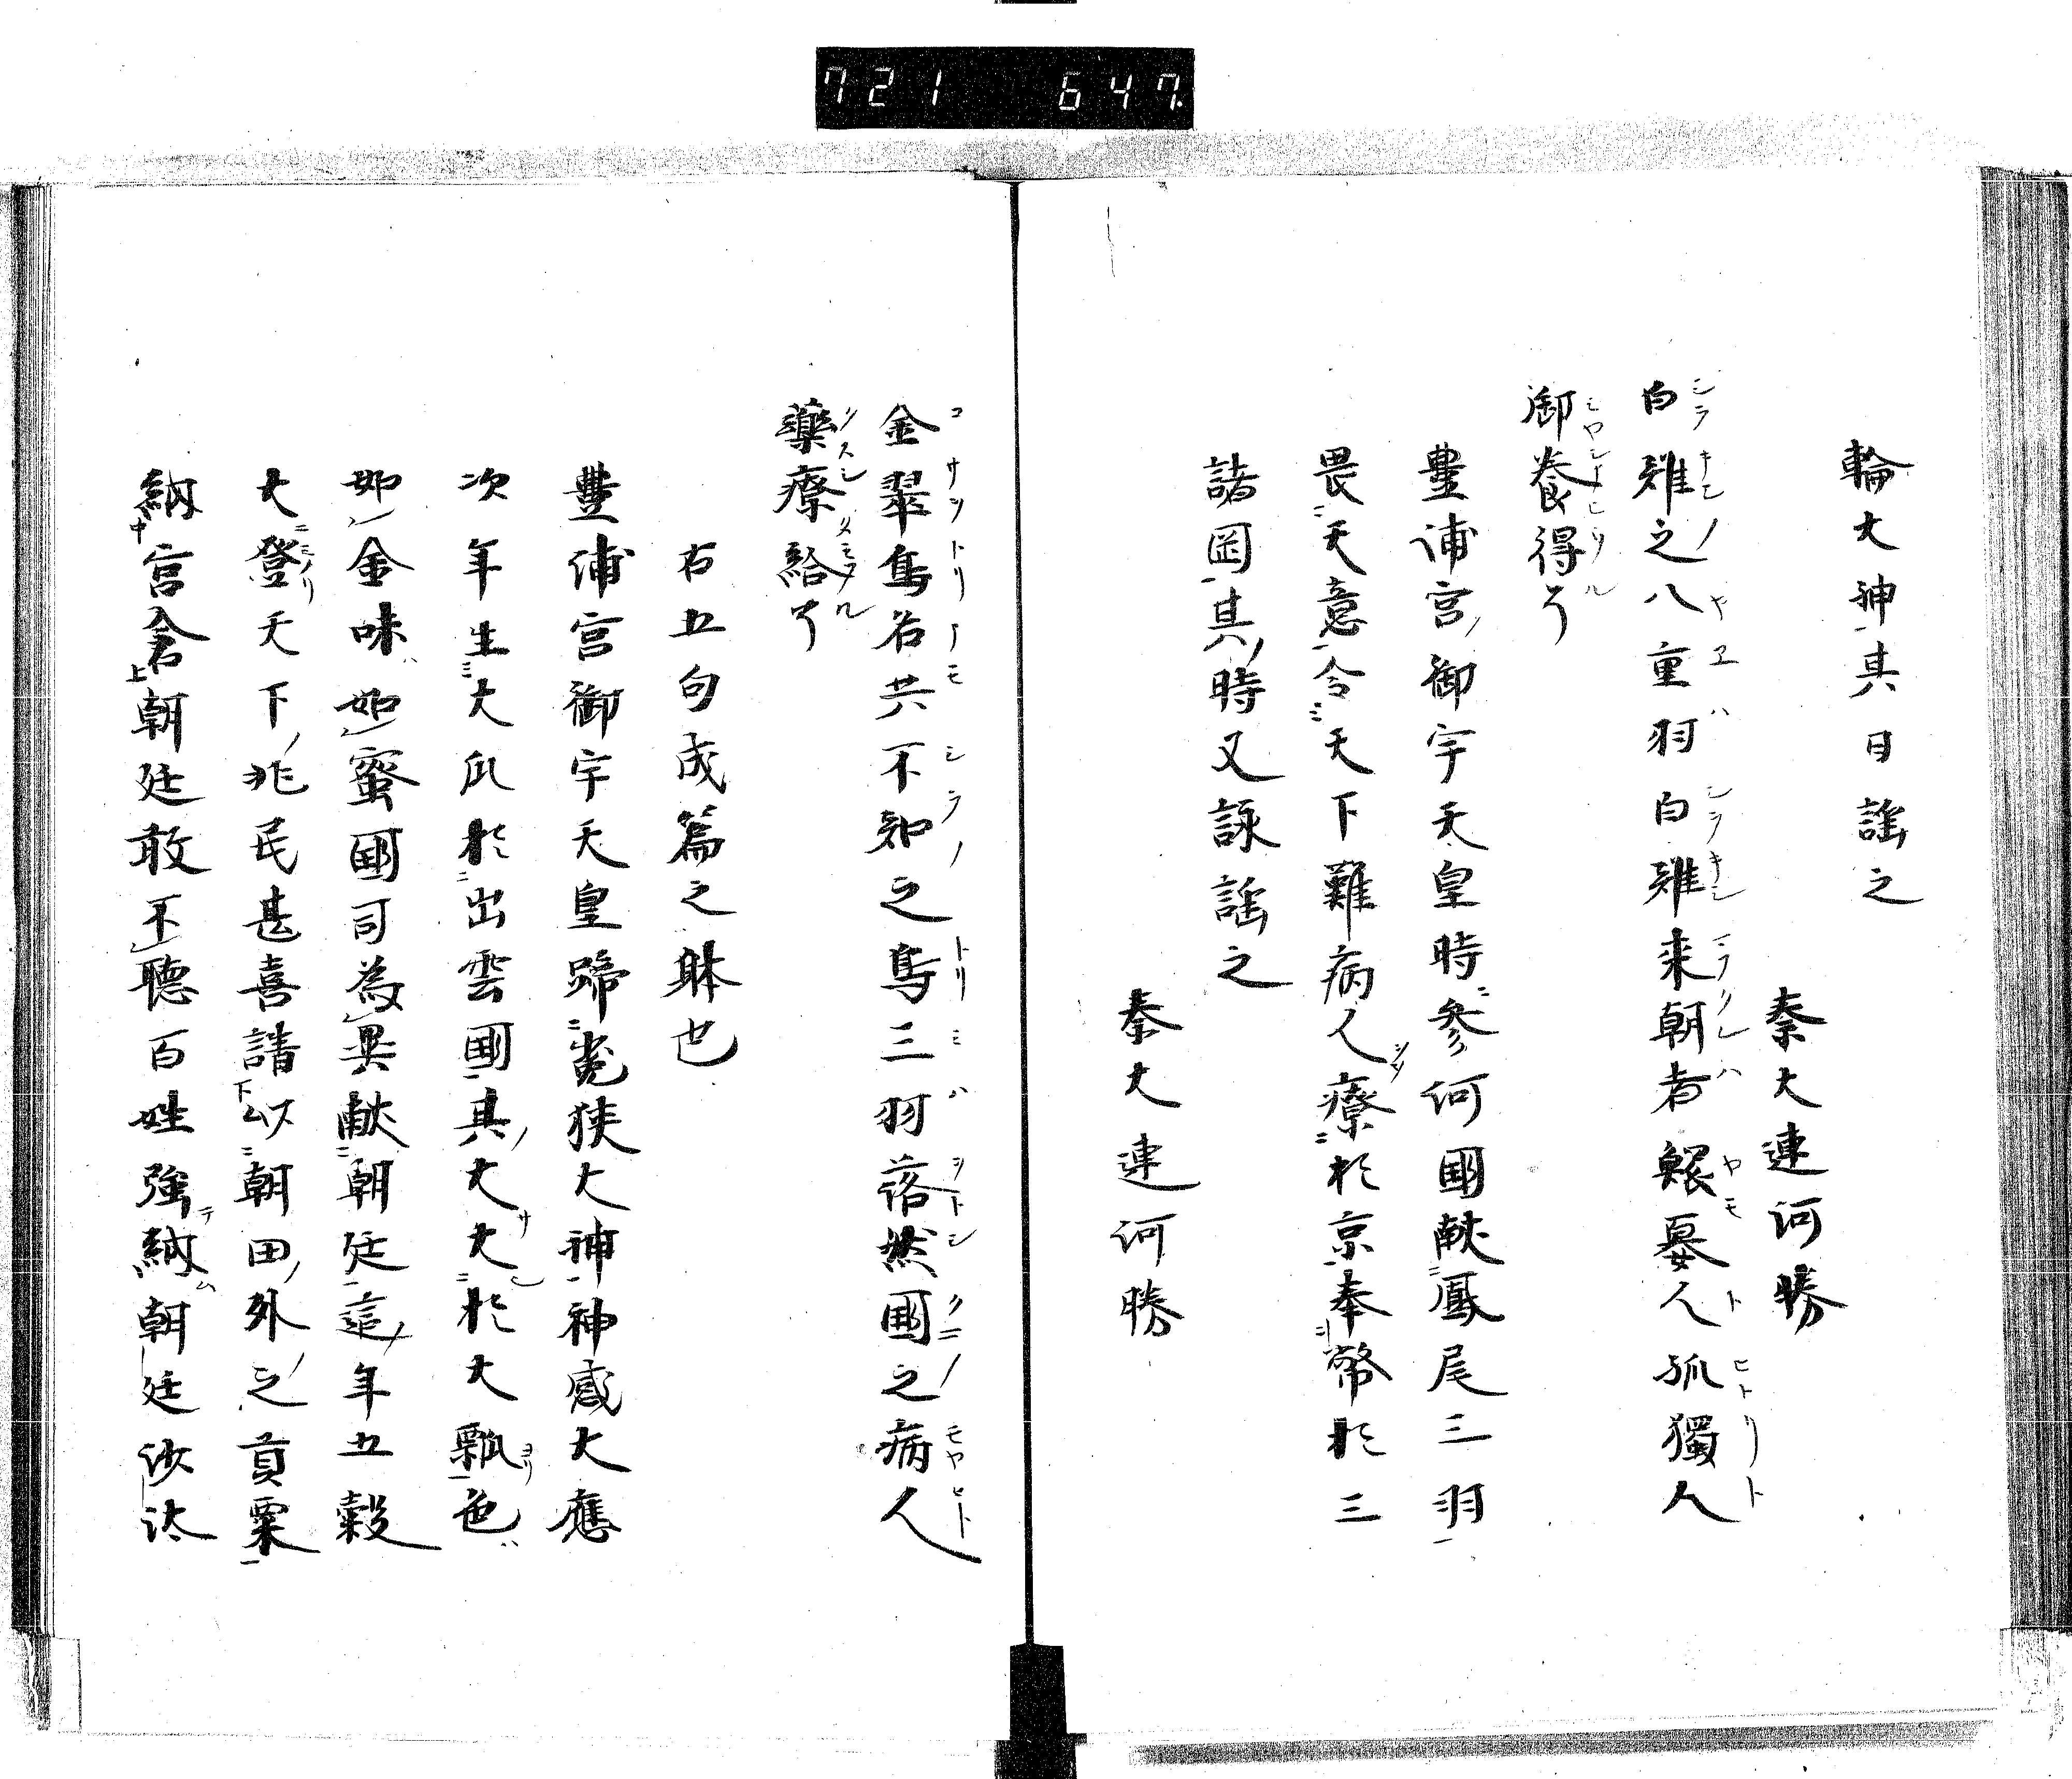 721 647
輪大神其日謡之
秦大連河勝
白雉之八重羽白雉来朝者鰥寡人孤獨人
御養得了
豊浦宮御宇天皇時参河國献鳳尾三羽
畏天意令天下難病人療於京奉幣於三
諸岡其時又詠謡之
秦大連河勝
金翠鳥名共不知之鳥三羽落然國之病人
藥療給了
右五句成篇之躰也
豊浦宮御宇天皇歸笥狭大神神感大應
次年生大瓜於出雲國其大大於大瓢色
如金味如蜜國司為異献朝廷這年五穀
大登天下兆民甚喜請以朝田外之貢粟
納宮倉朝廷敢不聴百姓強納朝廷沙汰